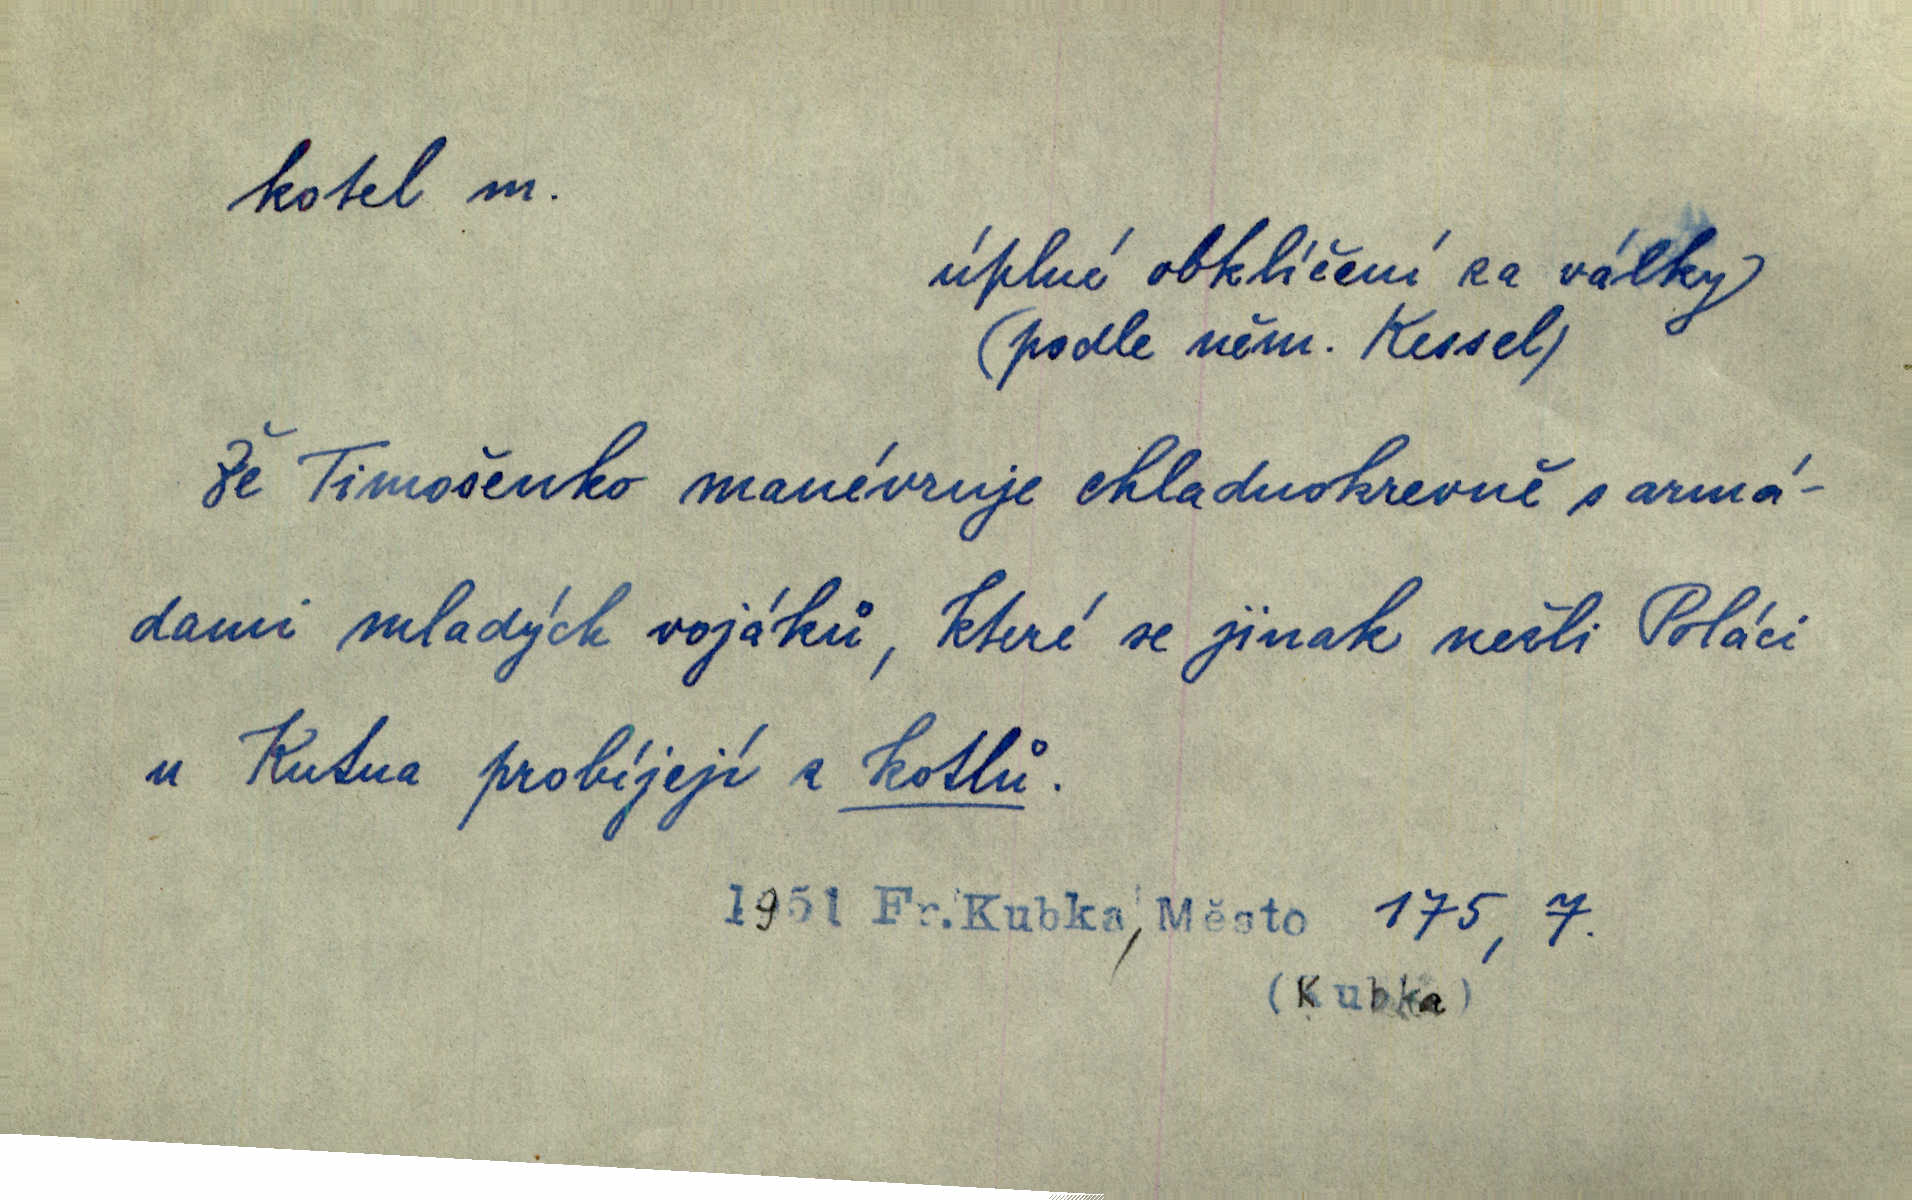 kotel m.
úplné obklíčení za války
(podle něm. Kessel)
Že Timošenko manévruje chladnokrevně s armá-
dami mladých vojáků, které se jinak nežli Poláci
u Kutna probíjejí z kotlů.
1951 Fr. Kubka, Město 175, 7.
(Kubka)